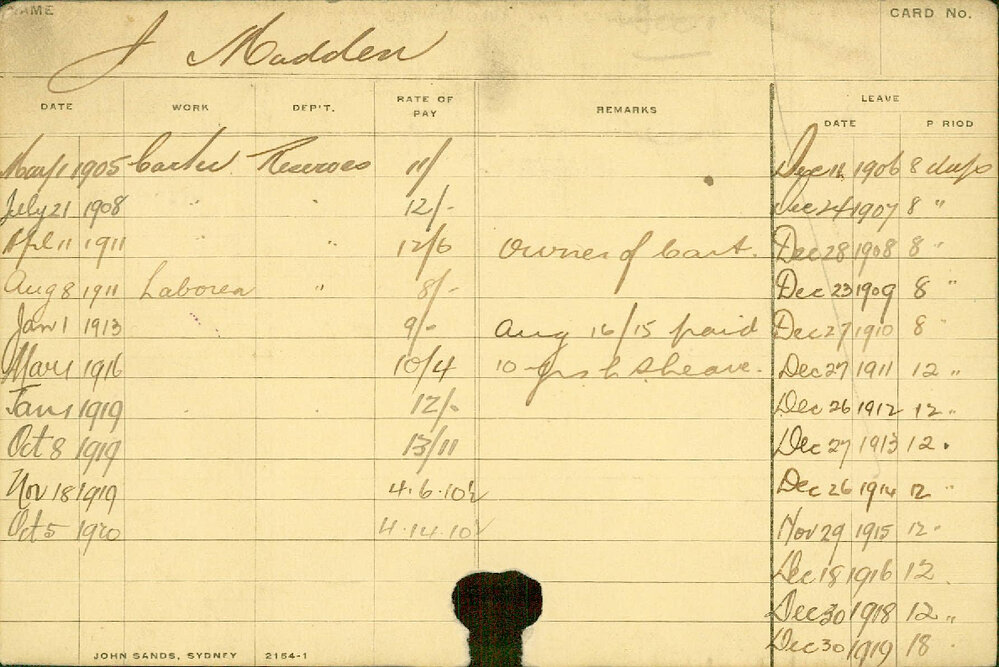 NAME CARD No.
J Madden
DATE WORK DEP'T. RATE OF PAY REMARKS LEAVE
DATE P RIOD
May 1 1905 Carter Reserves 11/ Dec 11 1906 8 days
July 21 1908 " " 12/- Dec 24 1907 8 "
Apl 11 1911 " " 12/6 Owner of Cart. Dec 28 1908 8 "
Aug 8 1911 Laborer " 8/- Dec 23 1909 8 "
Jan 1 1913 9/- Aug 16/15 paid Dec 27 1910 8 "
Mar 1 1916 10/4 10 yrs Leave. Dec 27 1911 12 "
Jan 1 1919 12/- Dec 26 1912 12 "
Oct 8 1919 13/11 Dec 27 1913 12 "
Nov 18 1919 4.6.10½ Dec 26 1914 12 "
Oct 5 1920 4.14.10½ Nov 29 1915 12 "
Dec 18 1916 12
Dec 30 1918 12 "
Dec 30 1919 18
JOHN SANDS, SYDNEY 2154-1